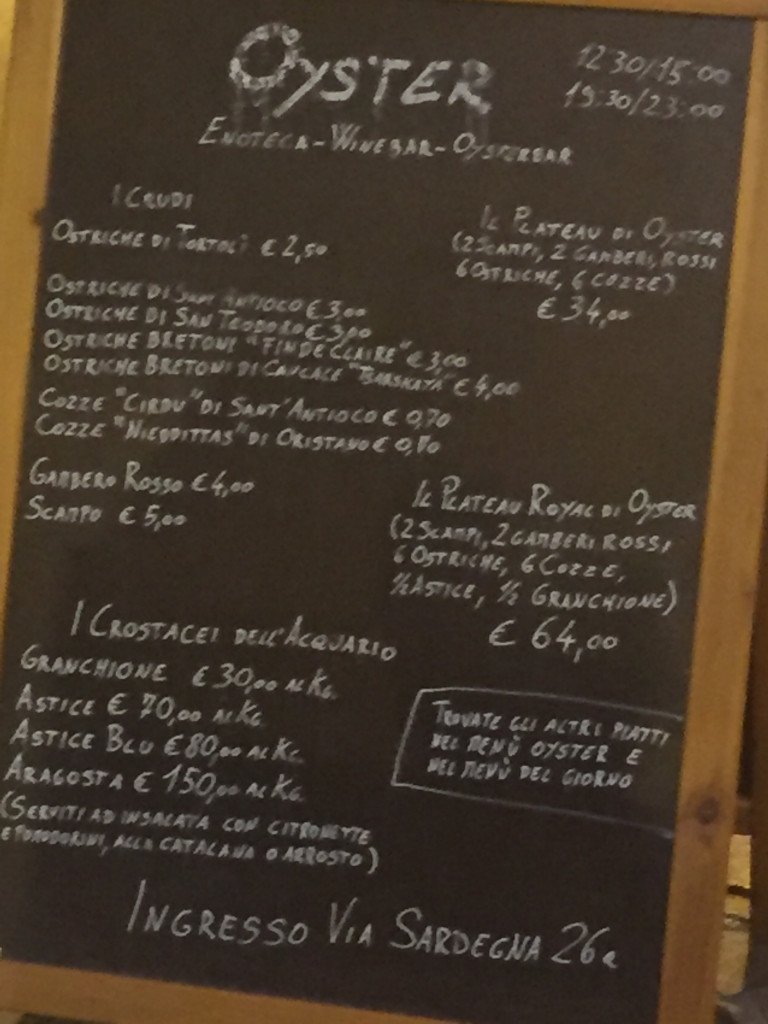 OYSTER
12:30/15:00
19:30/23:00
ENOTECA-WINEBAR-OYSTERBAR
I CRUDI
OSTRICHE DI TORTOLÌ € 2,50
OSTRICHE DI SANT'ANTIOCO € 3,00
OSTRICHE DI SAN TEODORO € 3,00
OSTRICHE BRETONI "FINDECLAIRE" € 3,00
OSTRICHE BRETONI DI CANCALE "TSARSKAYA" € 4,00
COZZE "CIRDU" DI SANT'ANTIOCO € 0,70
COZZE "NIEDDITTAS" DI ORISTANO €
GAMBERO ROSSO € 4,00
SCAMPO € 5,00
IL PLATEAU DI OYSTER
(2 SCAMPI, 2 GAMBERI, ROSSI
6 OSTRICHE, 6 COZZE)
€ 34,00
IL PLATEAU ROYAL DI OYSTER
(2 SCAMPI, 2 GAMBERI ROSSI,
6 OSTRICHE, 6 COZZE,
½ ASTICE, ½ GRANCHIONE)
€ 64,00
I CROSTACEI DELL'ACQUARIO
GRANCHIONE € 30,00 AL KG.
ASTICE € 70,00 AL KG
ASTICE BLU € 80,00 AL KG.
ARAGOSTA € 150,00 AL KG.
(SERVITI AD INSALATA CON CITRONETTE
E POMODORINI, ALLA CATALANA O ARROSTO)
TROVATE GLI ALTRI PIATTI
NEL MENÙ OYSTER E
NEL MENÙ DEL GIORNO
INGRESSO VIA SARDEGNA 26a